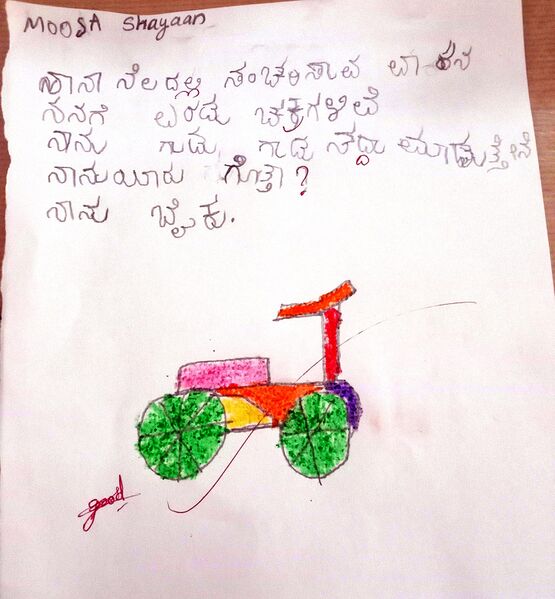 MOOSA Shayaan
ನಾನು ನೆಲದಲ್ಲಿ ಸಂಚರಿಸುವ ವಾಹನ
ನನಗೆ ಎರಡು ಚಕ್ರಗಳಿವೆ
ನಾನು ಗುಡು ಗುಡು ಸದ್ದು ಮಾಡುತ್ತೇನೆ
ನಾನುಯಾರು ಗೊತ್ತಾ?
ನಾನು ಬೈಕು.
good